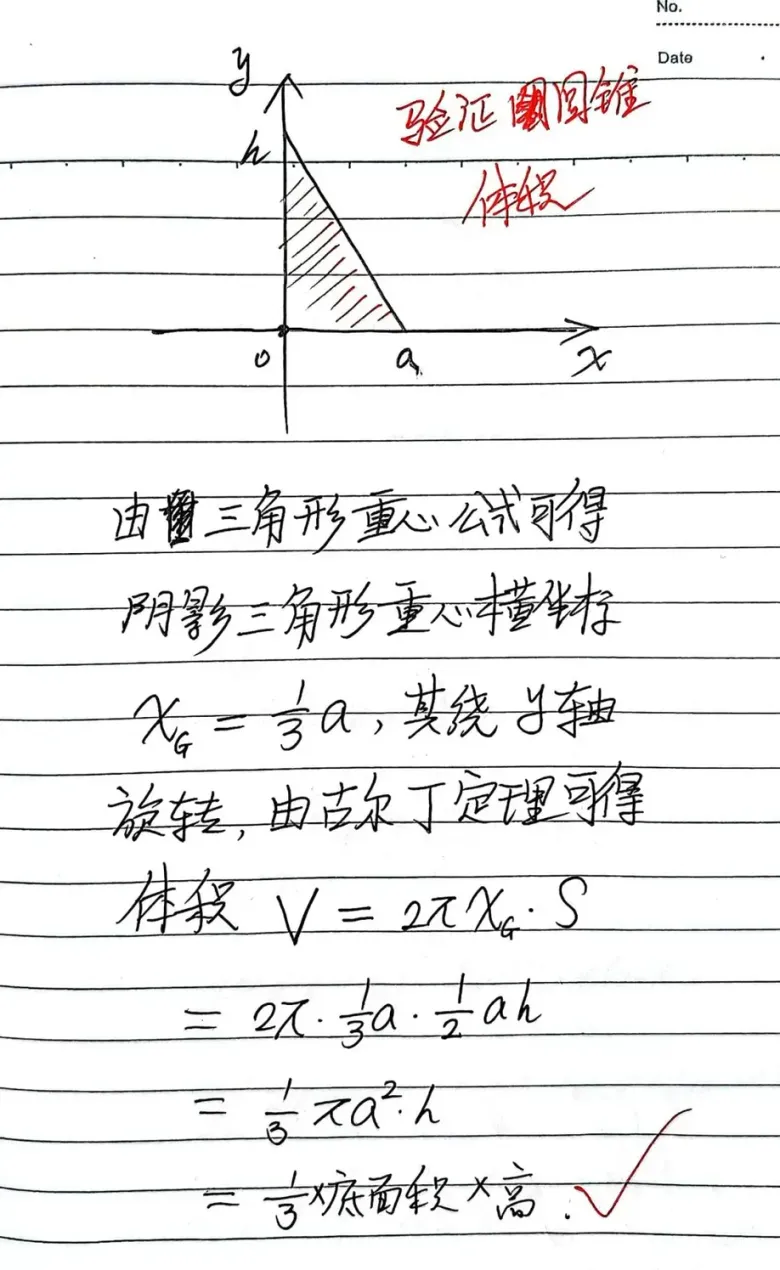 No.
Date
y
验证圆锥
h
体积
0
a
x
由三角形重心公式可得
阴影三角形重心横坐标
x_G = 1/3 a, 其绕 y轴
旋转, 由古尔丁定理可得
体积 V = 2π x_G · S
= 2π · 1/3 a · 1/2 a h
= 1/3 π a² · h
= 1/3 × 底面积 × 高.